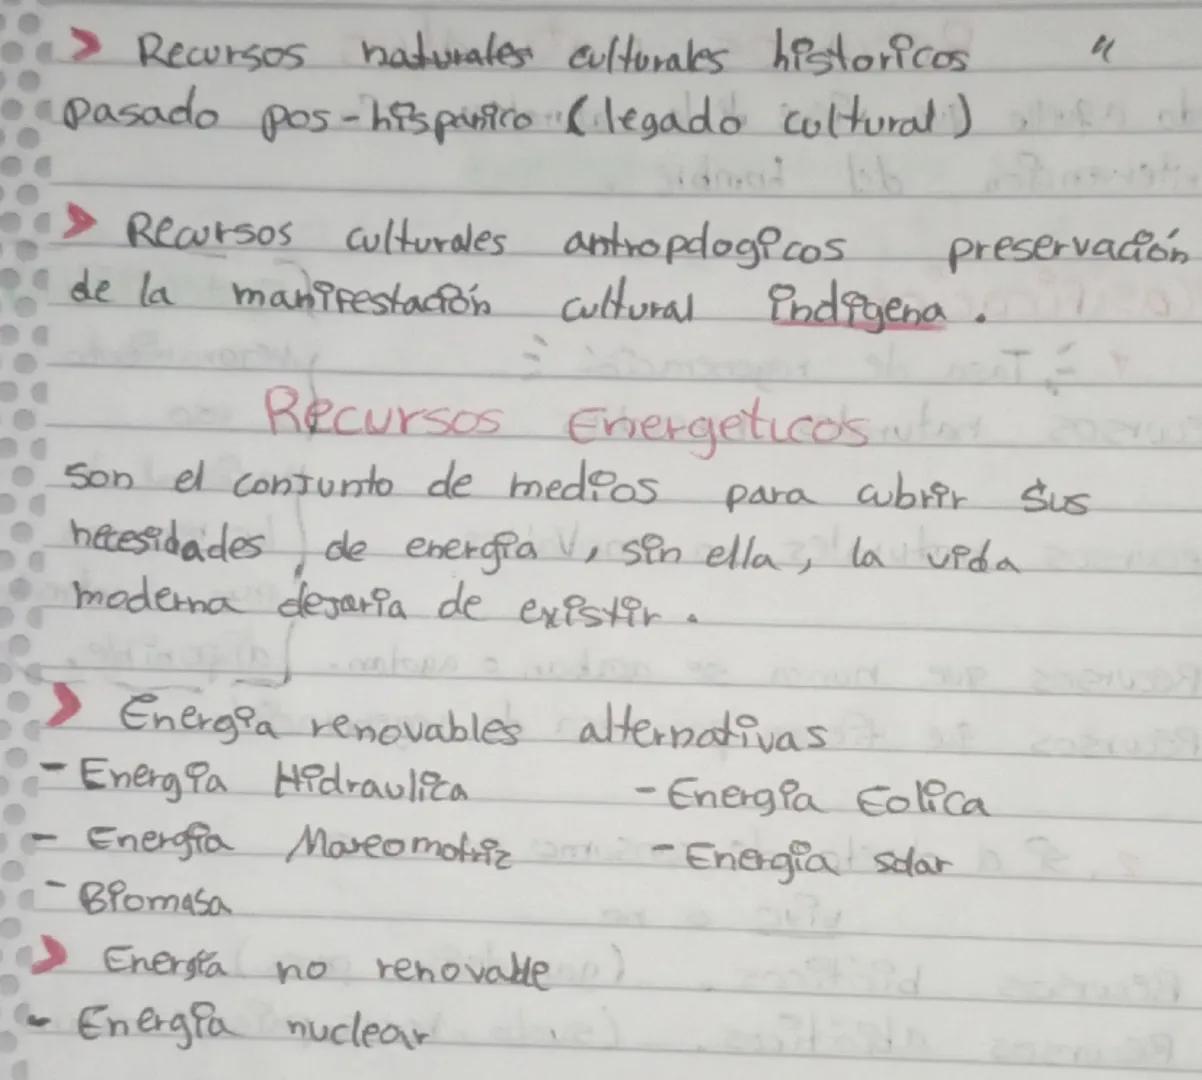 > Recursos naturales culturales historicos "
pasado pos-hispanico (legado cultural)
> Recursos culturales antropologicos preservación
de la manifestación cultural indigena.
Recursos Energeticos
son el conjunto de medios para cubrir sus
necesidades de energia, sin ella, la vida
moderna dejaria de existir.
> Energia renovables alternativas
- Energia Hidraulica - Energia Eolica
- Energia Mareomotriz - Energia solar
- Biomasa
> Energia no renovable
- Energia nuclear